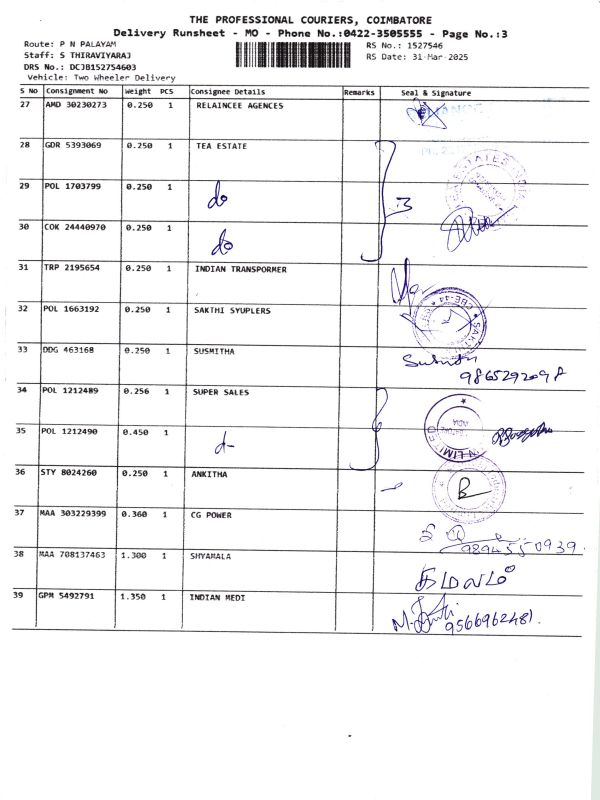 THE PROFESSIONAL COURIERS, COIMBATORE
Delivery Runsheet - MO - Phone No.:0422-3505555 - Page No.:3
Route: P N PALAYAM RS No.: 1527546
Staff: S THIRAVIYARAJ RS Date: 31-Mar-2025
DRS No.: DCJB152754603
Vehicle: Two Wheeler Delivery
S No Consignment No Weight PCS Consignee Details Remarks Seal & Signature
27 AMD 30230273 0.250 1 RELAINCEE AGENCES
28 GDR 5393069 0.250 1 TEA ESTATE
29 POL 1703799 0.250 1 do 3
30 COK 24440970 0.250 1 do
31 TRP 2195654 0.250 1 INDIAN TRANSPORMER
32 POL 1663192 0.250 1 SAKTHI SYUPLERS
33 DDG 463168 0.250 1 SUSMITHA
34 POL 1212489 0.256 1 SUPER SALES
35 POL 1212490 0.450 1
36 STY 8024260 0.250 1 ANKITHA B
37 MAA 303229399 0.360 1 CG POWER
9894550939
38 MAA 708137463 1.300 1 SHYAMALA
39 GPM 5492791 1.350 1 INDIAN MEDI
9566962481